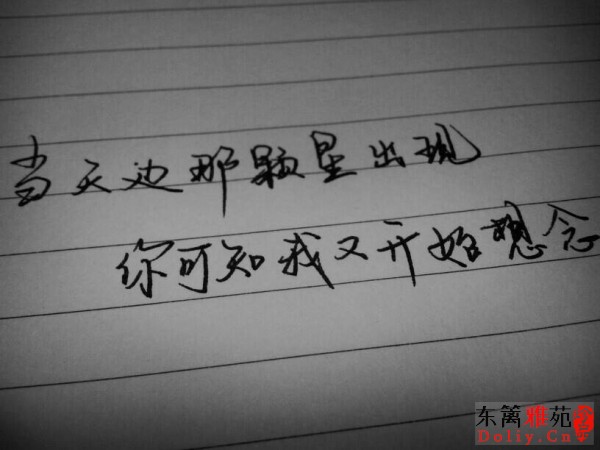 当天边那颗星出现
你可知我又开始想念
东篱雅苑
Dolly.Cn